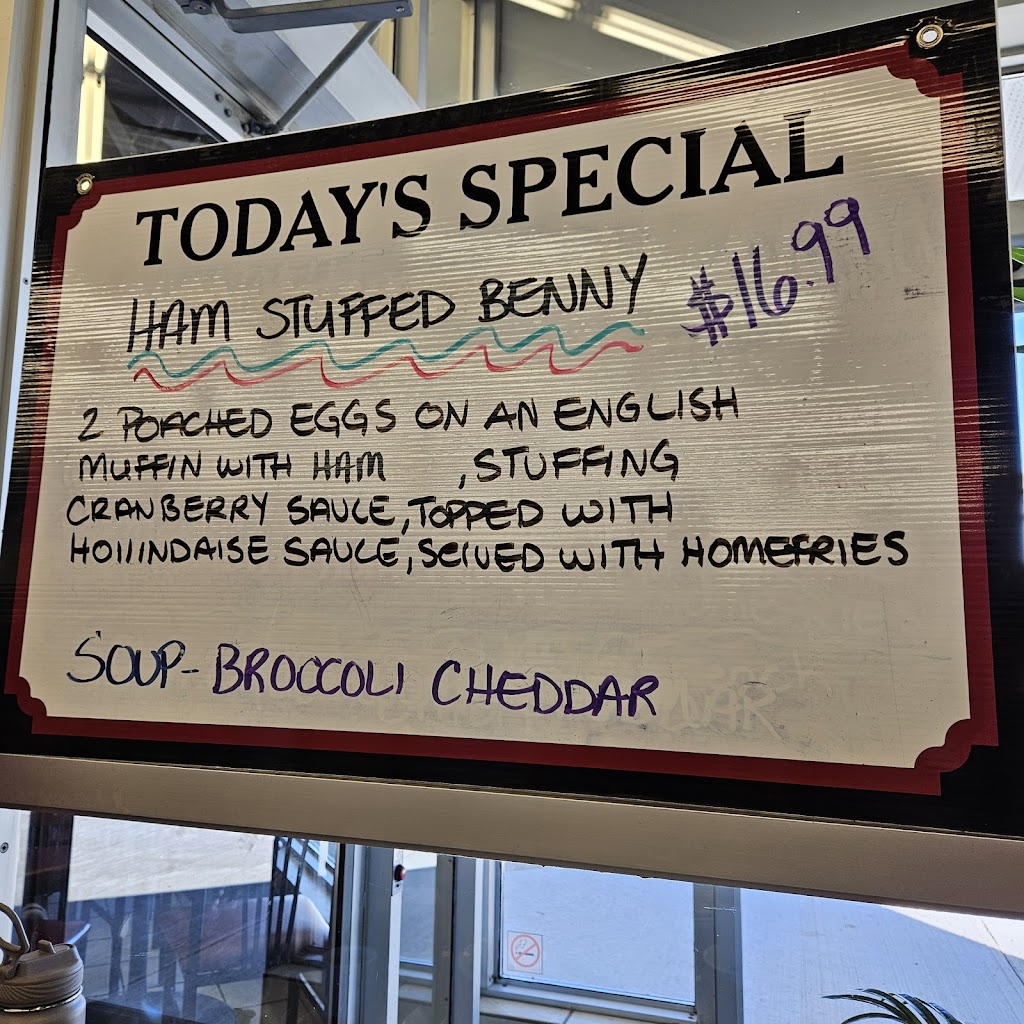 TODAY'S SPECIAL
HAM STUFFED BENNY $16.99
2 POACHED EGGS ON AN ENGLISH
MUFFIN WITH HAM , STUFFING
CRANBERRY SAUCE, TOPPED WITH
HOllINDAISE SAUCE, SERVED WITH HOMEFRIES
SOUP- BROCCOLI CHEDDAR